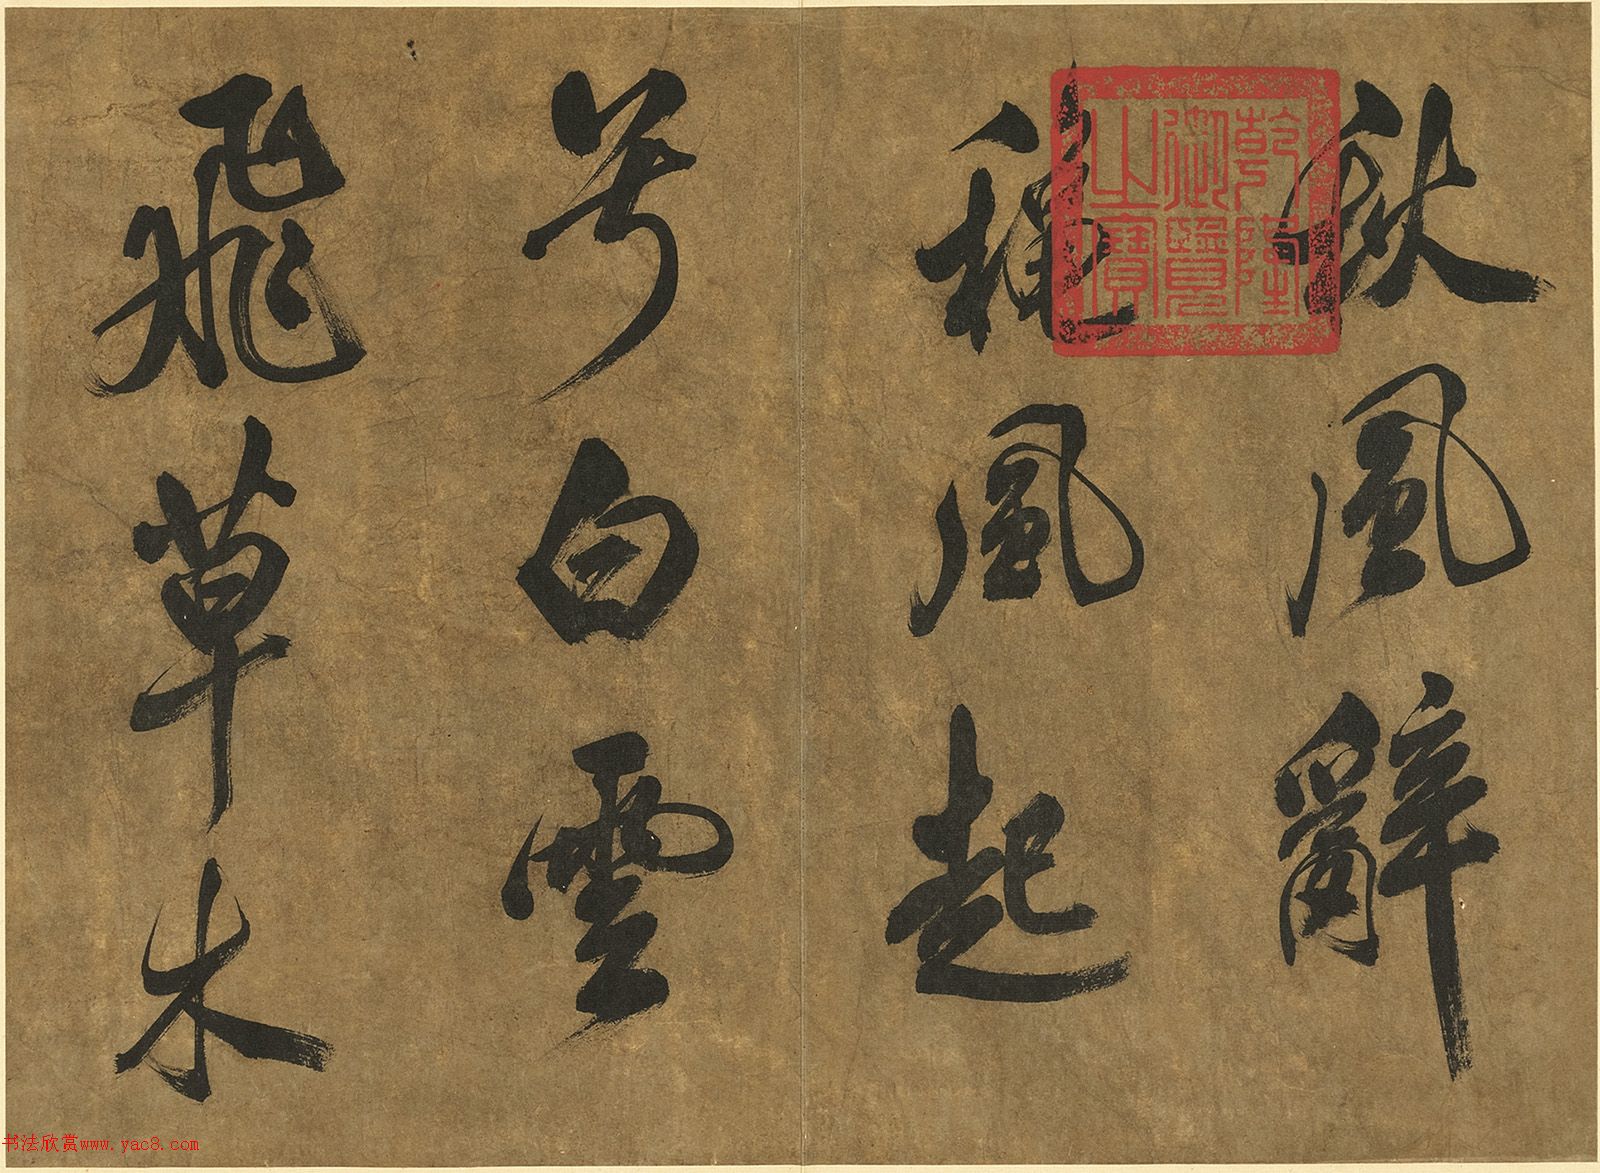 秋風辭
穐風起
兮白雲
飛草木
乾隆
御覽
之寶
书法欣赏www.yac8.com